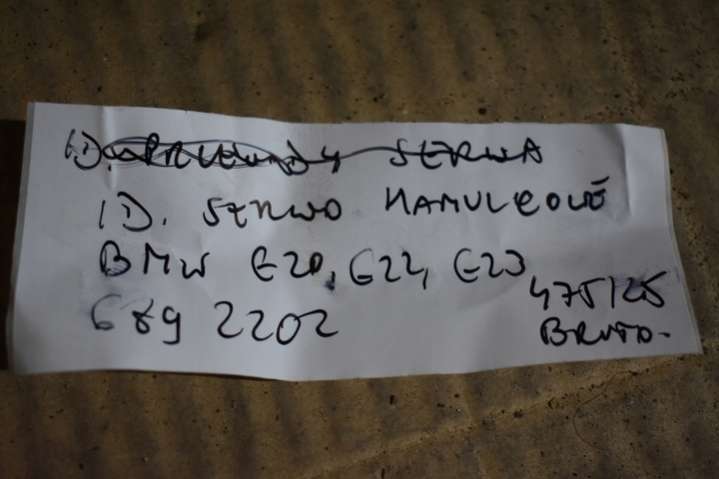 1D. PRZEWODY SERWA
1D. SERWO HAMULCOWE
BMW G20, G22, G23
689 2202
475/25
BRUTTO.